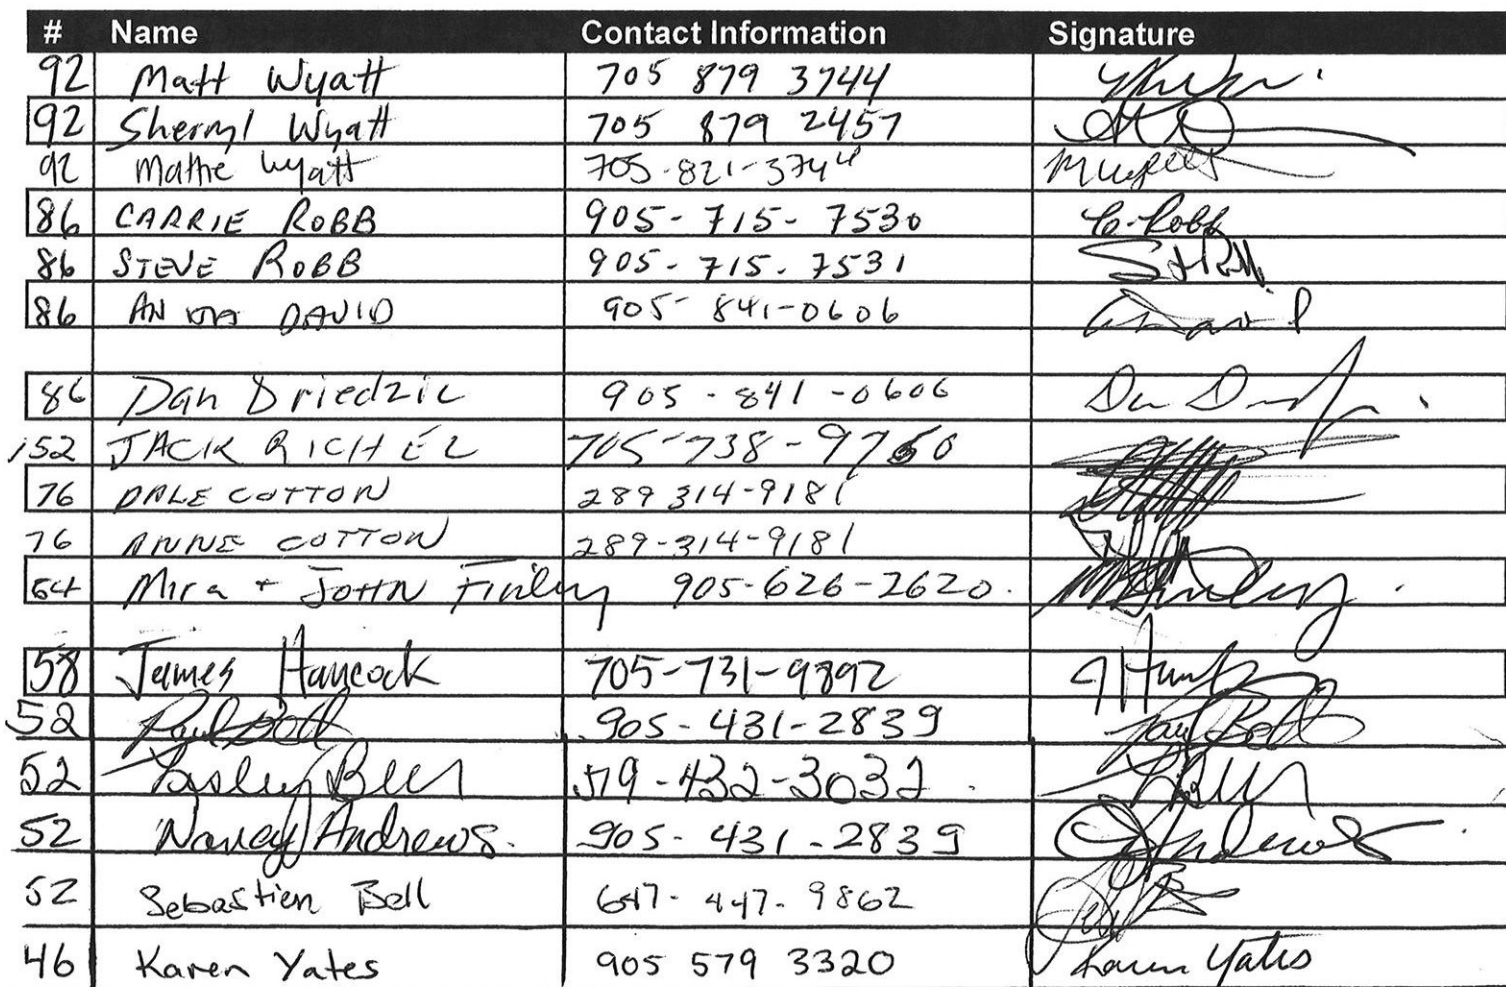 # Name Contact Information Signature
92 Matt Wyatt 705 879 3744
92 Sherryl Wyatt 705 879 2457
92 Mattie Wyatt 705-821-3744
86 CARRIE ROBB 905-715-7530 C. Robb
86 STEVE ROBB 905-715-7531
86 DAVID 905-841-0606
86 Dan Driedzic 905-841-0606
152 JACK RICHEL 705-738-9760
76 DALE COTTON 289 314-9181
76 ANNE COTTON 289-314-9181
64 Mira + JOHN Finley 905-626-2620.
58 James Haycock 705-731-9892
52 Paul Bell 905-431-2839 Paul Bell
52 519-432-3032
52 Nancy Andrews. 905-431-2839
52 Sebastien Bell 647-447-9862
46 Karen Yates 905 579 3320 Karen Yates